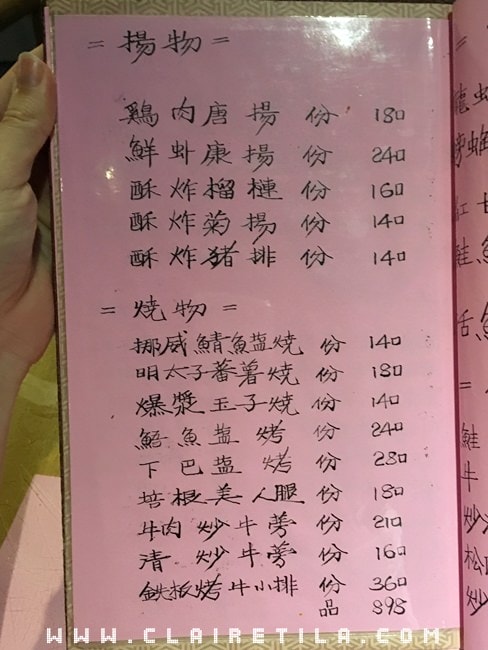 = 揚物 =
鶏肉唐揚 份 180
鮮蚵康揚 份 240
酥炸榴槤 份 160
酥炸菊揚 份 140
酥炸豬排 份 140
= 焼物 =
挪威鯖魚盐燒 份 140
明太子蕃薯燒 份 180
爆漿玉子燒 份 140
魚盐烤 份 240
下巴盐烤 份 280
培根美人腿 份 180
牛肉炒牛蒡 份 210
清炒牛蒡 份 160
鉄板烤牛小排 份 360
品 898
WWW.CLAIRETILA.COM